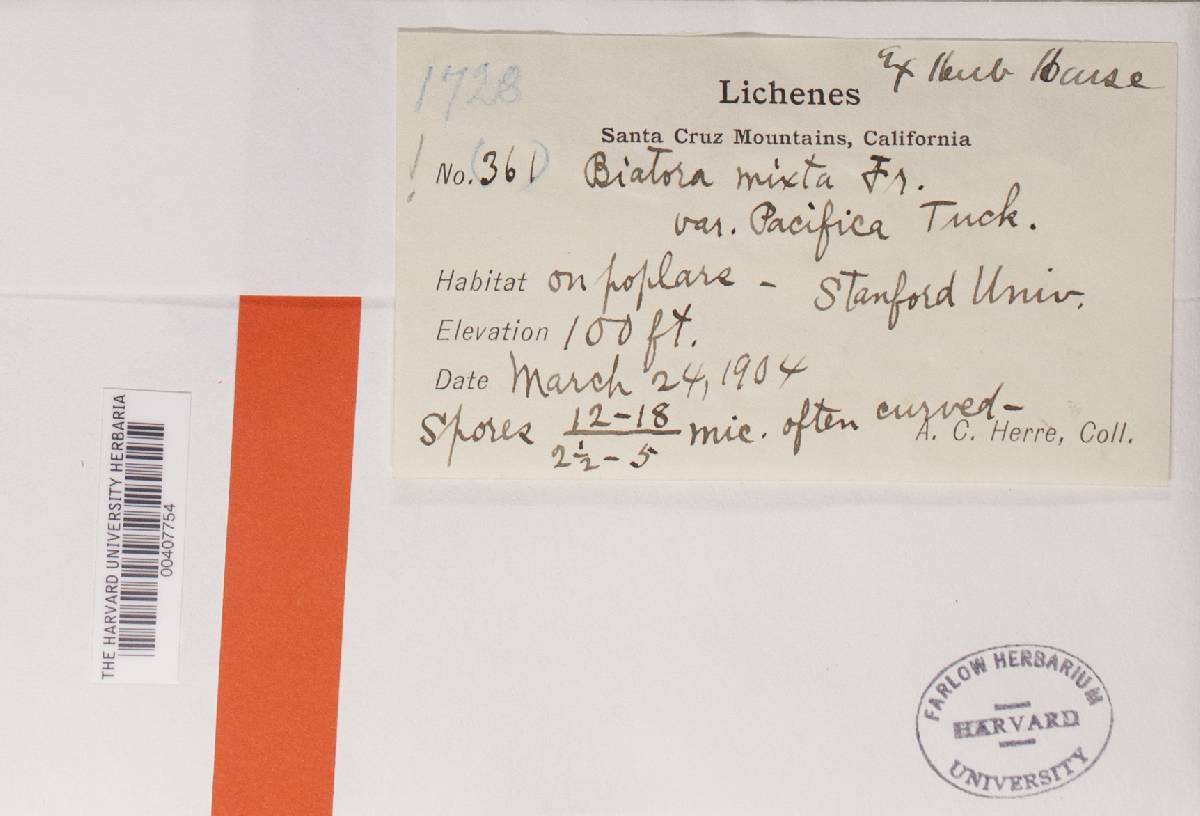 1728
Ex Herb House
Lichenes
Santa Cruz Mountains, California
! No. (361) Biatora mixta Fr.
var. Pacifica Tuck.
Habitat on poplars - Stanford Univ.
Elevation 100 ft.
Date March 24, 1904
Spores 12-18 / 2½-5 mic. often curved-
A. C. Herre, Coll.
THE HARVARD UNIVERSITY HERBARIA
00407754
FARLOW HERBARIUM
HARVARD
UNIVERSITY